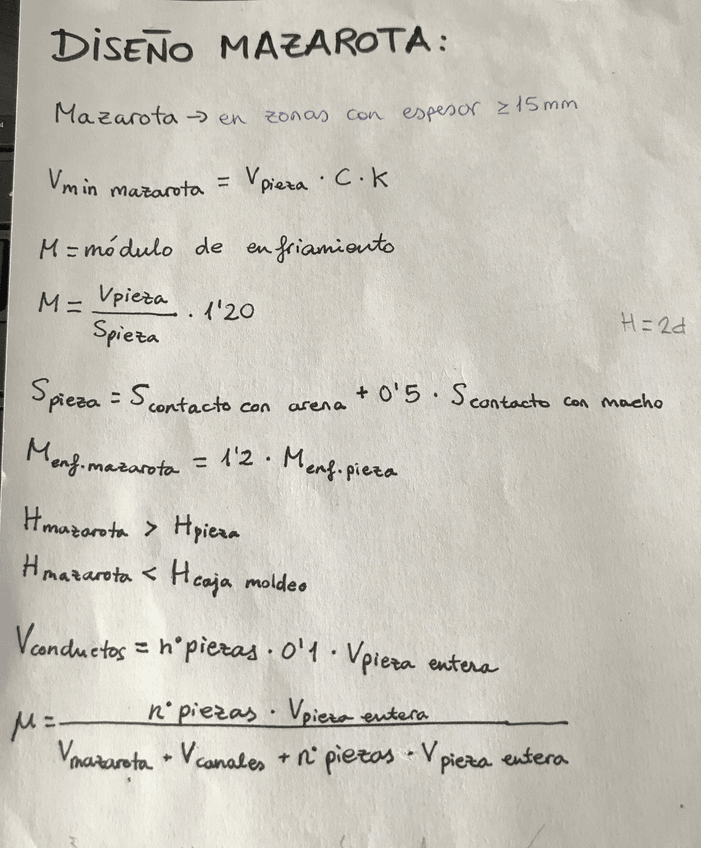 DISEÑO MAZAROTA:
Mazarota → en zonas con espesor ≥ 15mm
Vmin mazarota = Vpieza · C · K
M = módulo de enfriamiento
M = Vpieza / Spieza · 1'20
H = 2d
Spieza = Scontacto con arena + 0'5 · Scontacto con macho
Menf. mazarota = 1'2 · Menf. pieza
Hmazarota > Hpieza
Hmazarota < Hcaja moldeo
Vconductos = nº piezas · 0'1 · Vpieza entera
μ = nº piezas · Vpieza entera / Vmazarota + Vcanales + nº piezas · Vpieza entera